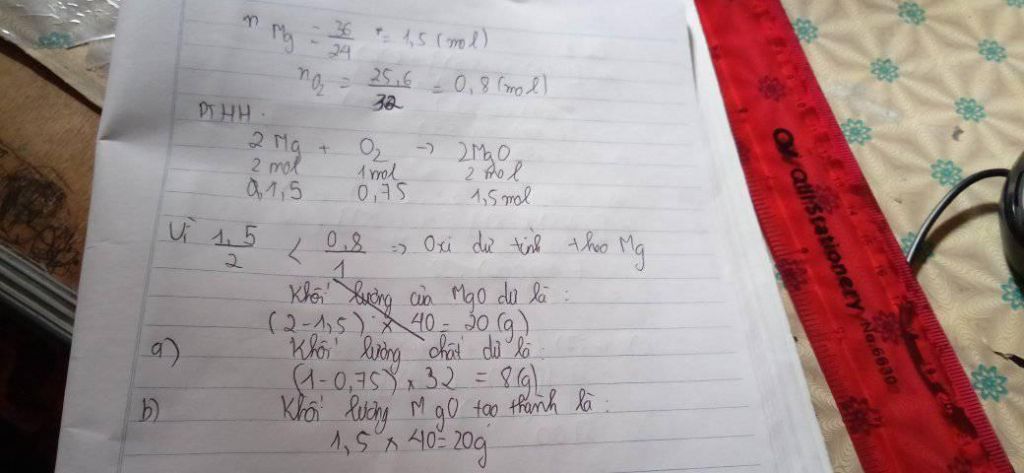 n Mg = 36/24 = 1,5 (mol)
nO2 = 25,6/32 = 0,8 (mol)
PTHH.
2Mg + O2 → 2MgO
2mol 1mol 2mol
1,5 0,75 1,5mol
Vì 1,5/2 < 0,8/1 => Oxi dư tính theo Mg
Khối lượng của MgO dư là :
(2-1,5) x 40 = 20 (g)
a) Khối lượng chất dư là :
(1-0,75) x 32 = 8(g)
b) Khối lượng MgO tạo thành là :
1,5 x 40 = 20g
Stationery No.6630